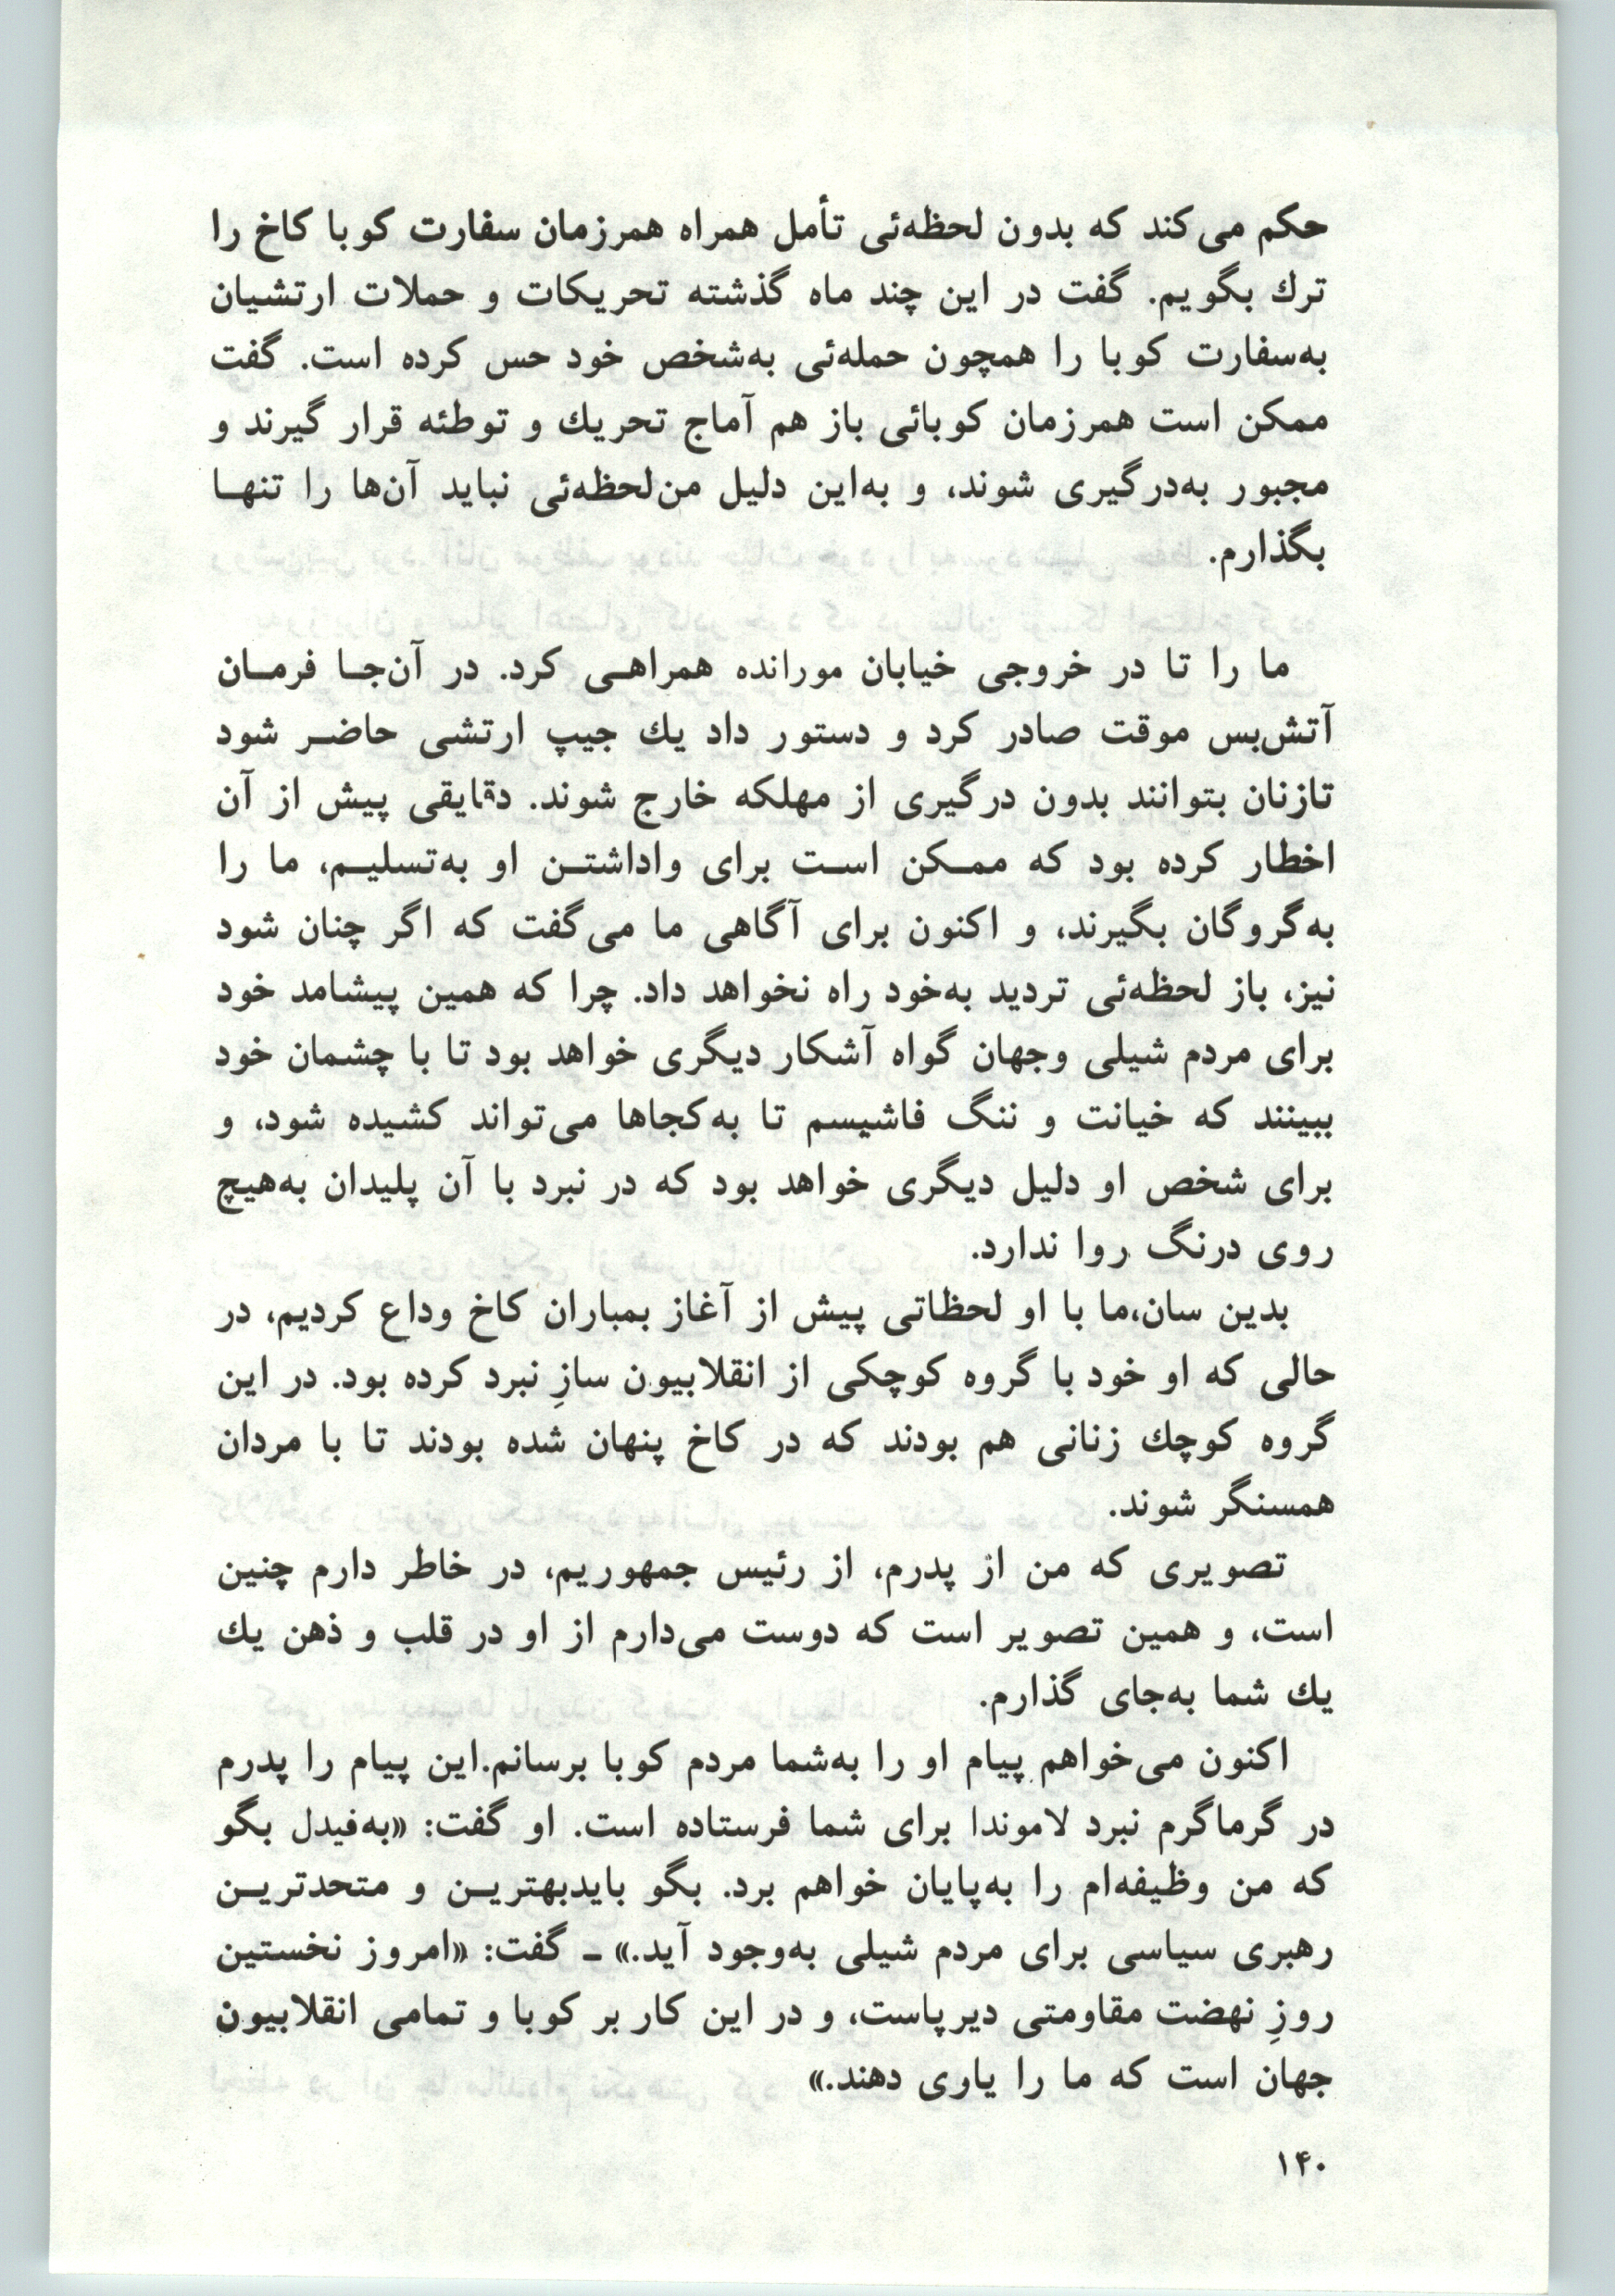 حکم می‌کند که بدون لحظه‌ئی تأمل همراه همرزمان سفارت کوبا کاخ را
ترك بگویم. گفت در این چند ماه گذشته تحریکات و حملات ارتشیان
به‌سفارت کوبا را همچون حمله‌ئی به‌شخص خود حس کرده است. گفت
ممکن است همرزمان کوبائی باز هم آماج تحریك و توطئه قرار گیرند و
مجبور به‌درگیری شوند، و به‌این دلیل من‌لحظه‌ئی نباید آن‌ها را تنهـا
بگذارم.
ما را تا در خروجی خیابان مورانده همراهـی کرد. در آن‌جـا فرمـان
آتش‌بس موقت صادر کرد و دستور داد یك جیپ ارتشی حاضـر شود
تازنان بتوانند بدون درگیری از مهلکه خارج شوند. دقایقی پیش از آن
اخطار کرده بود که ممـکن اسـت برای واداشتـن او به‌تسلیـم، ما را
به‌گروگان بگیرند، و اکنون برای آگاهی ما می‌گفت که اگر چنان شود
نیز، باز لحظه‌ئی تردید به‌خود راه نخواهد داد. چرا که همین پیشامد خود
برای مردم شیلی وجهان گواه آشکار دیگری خواهد بود تا با چشمان خود
ببینند که خیانت و ننگ فاشیسم تا به‌کجاها می‌تواند کشیده شود، و
برای شخص او دلیل دیگری خواهد بود که در نبرد با آن پلیدان به‌هیچ
روی درنگ روا ندارد.
بدین سان،ما با او لحظاتی پیش از آغاز بمباران کاخ وداع کردیم، در
حالی که او خود با گروه کوچکی از انقلابیون سازِ نبرد کرده بود. در این
گروه کوچك زنانی هم بودند که در کاخ پنهان شده بودند تا با مردان
همسنگر شوند.
تصویری که من از پدرم، از رئیس جمهوریم، در خاطر دارم چنین
است، و همین تصویر است که دوست می‌دارم از او در قلب و ذهن یك
یك شما به‌جای گذارم.
اکنون می‌خواهم پیام او را به‌شما مردم کوبا برسانم.این پیام را پدرم
در گرماگرم نبرد لاموندا برای شما فرستاده است. او گفت: «به‌فیدل بگو
که من وظیفه‌ام را به‌پایان خواهم برد. بگو بایدبهتریـن و متحدتریـن
رهبری سیاسی برای مردم شیلی به‌وجود آید.» ـ گفت: «امروز نخستین
روزِ نهضت مقاومتی دیرپاست، و در این کار بر کوبا و تمامی انقلابیون
جهان است که ما را یاری دهند.»
۱۴۰